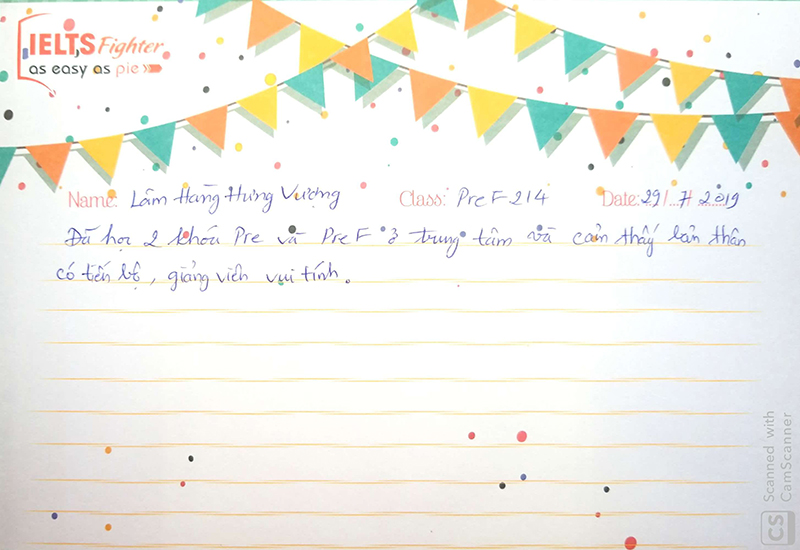 IELTS Fighter
as easy as pie
Name: Lâm Hang Hưng Vượng Class: Pre F 214 Date: 29/7 2019
Đã học 2 khóa Pre và Pre F ở trung tâm và cảm thấy bản thân
có tiến bộ, giảng viên vui tính.
CS Scanned with
CamScanner